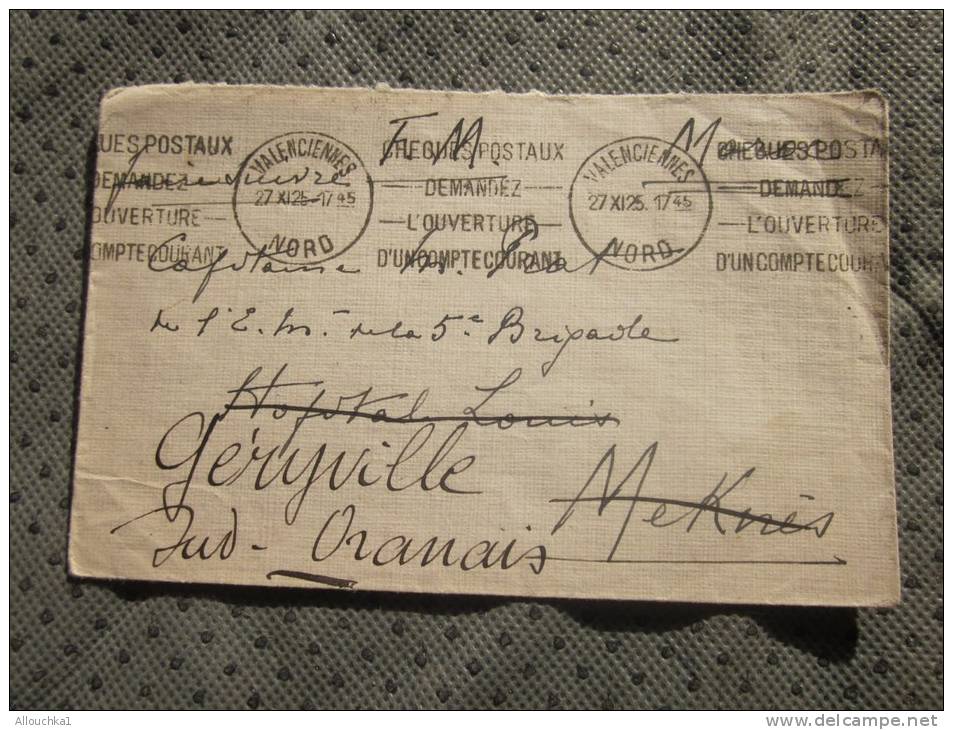 F. M.
QUES POSTAUX
DEMANDEZ
OUVERTURE
COMPTE COURANT
VALENCIENNES
27 XI 25. 17 45
NORD
CHEQUES POSTAUX
DEMANDEZ
L'OUVERTURE
D'UN COMPTE COURANT
VALENCIENNES
27 XI 25. 17 45
NORD
CHEQUES POSTA
DEMANDEZ
L'OUVERTURE
D'UN COMPTE COURA
Capitaine
de l'E. M. de la 5e Brigade
Hopital Louis
Géryville Meknès
Sud-Oranais
Allouchka1
www.delcampe.net